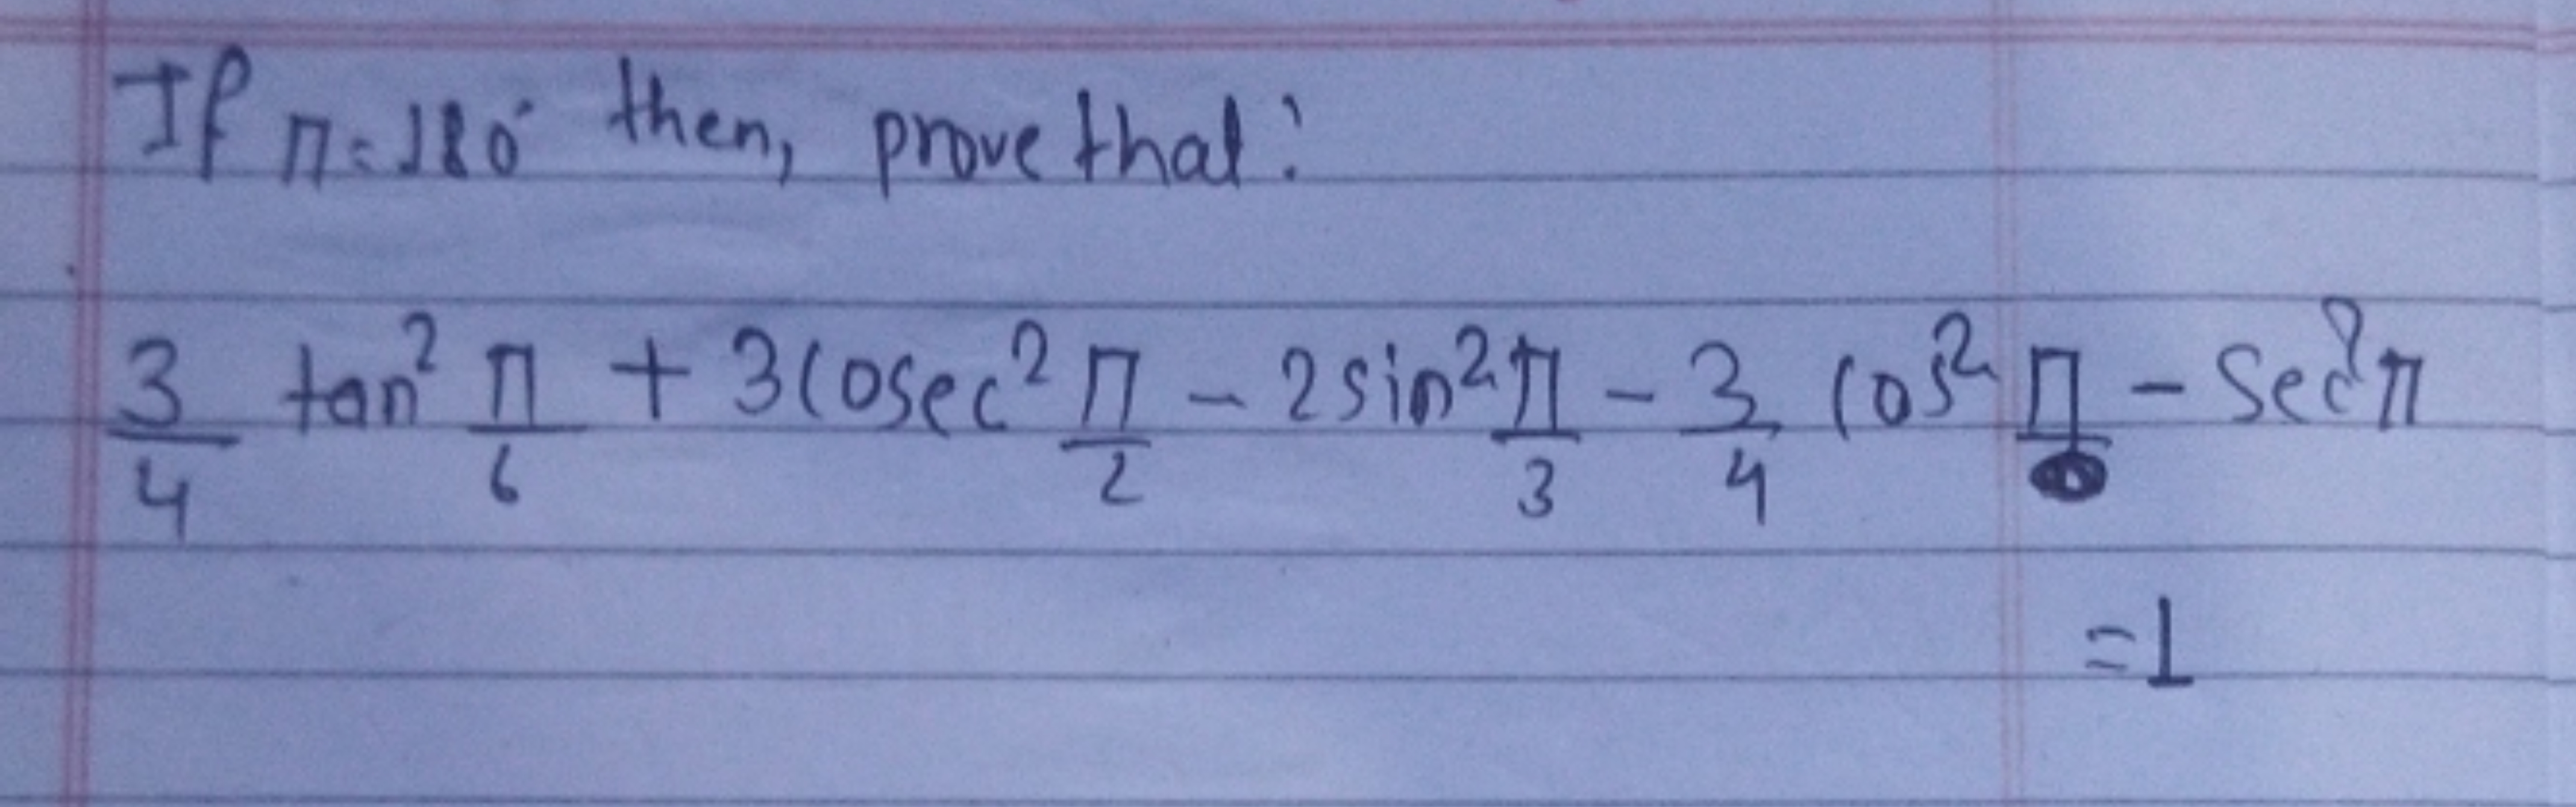 If π=180° then, prove that:
3/4 tan² π/6 + 3cosec² π/2 - 2sin² π/3 - 3/4 cos² π/ - sec²π
=1